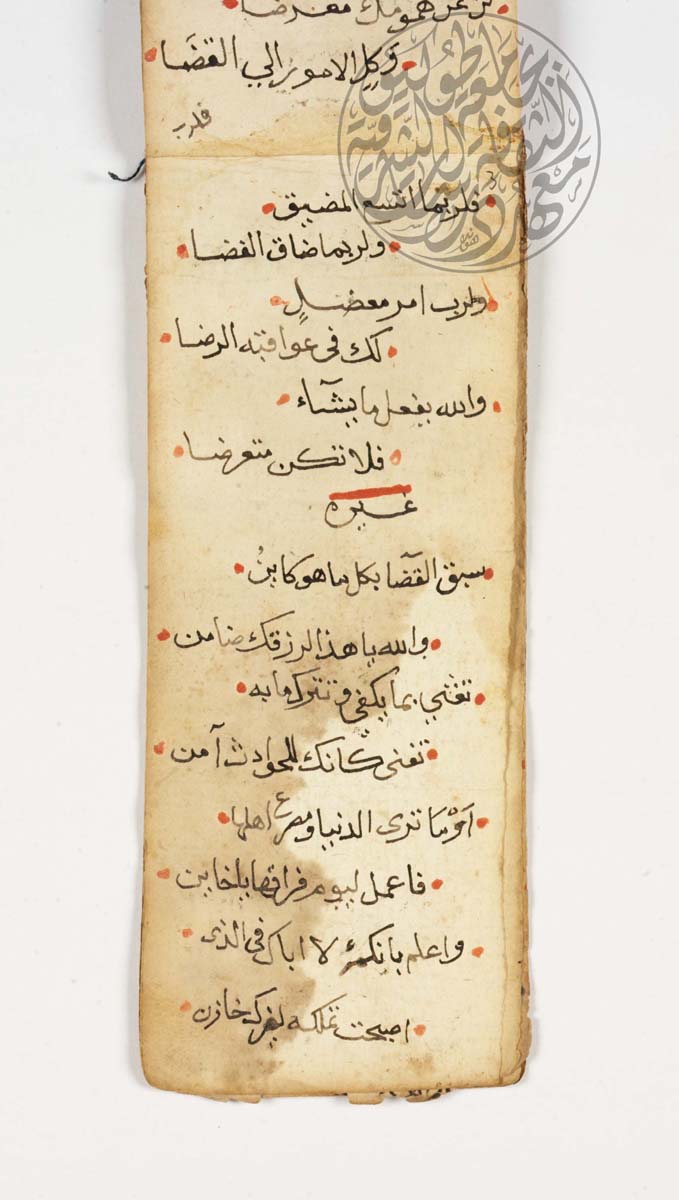 كن عن همومك معرضا
وكل الامور الي القضا
فلرب
فلربما اتسع المضيق
ولربما ضاق الفضا
ولرب امر معضل
لك في عواقبه الرضا
والله يفعل ما يشآء
فلا تكن متعرضا
غيره
سبق القضا بكل ما هو كاين
والله يا هذا لرزقك ضامن
تعني بما يكفي وتترك ما به
تغنى كانك للحوادث آمن
اوما ترى الدنيا ومصرع اهلها
فاعمل ليوم فراقها يا خاين
واعلم بانك لا اباك في الذي
اصبحت تملكه لغيرك خازن